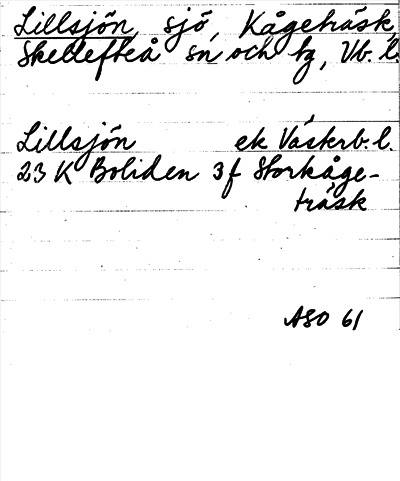 Lillsjön, sjö, Kågeträsk,
Skellefteå sn och tg, Vb. l.
Lillsjön ek Västerb. l.
23 K Boliden 3 f Storkåge-
träsk
ASO 61